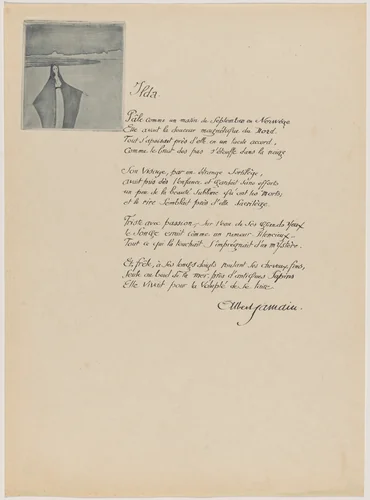 Ilda.
Pâle comme un matin de Septembre en Norwège
Elle avait la douceur magnétique du Nord.
Tout s'apaisait près d'elle en un tacite accord,
Comme le bruit des pas s'étouffe dans la neige
Son Visage, par un étrange Sortilège,
avait pris dès l'enfance et gardait sans efforts
un peu de la beauté sublime qu'ont les Morts;
et le rire semblait près d'elle Sacrilège.
Triste avec passion, Sur l'eau de Ses Grands Yeux
le Songe errait comme un rameur Silencieux
Tout ce qui la touchait s'imprégnait d'un mystère.
Et, frêle, à Ses longs doigts roulant Ses cheveux fins,
Seule au bord de la mer près d'antiques Sapins
Elle Vivait pour la Volupté de se taire.
Albert Samain.